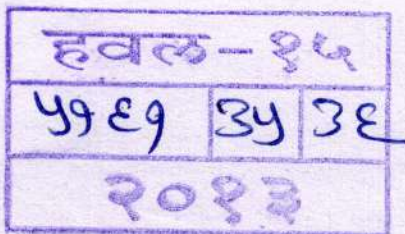 हवल-१५
५१६१ ३५ ३६
२०१३